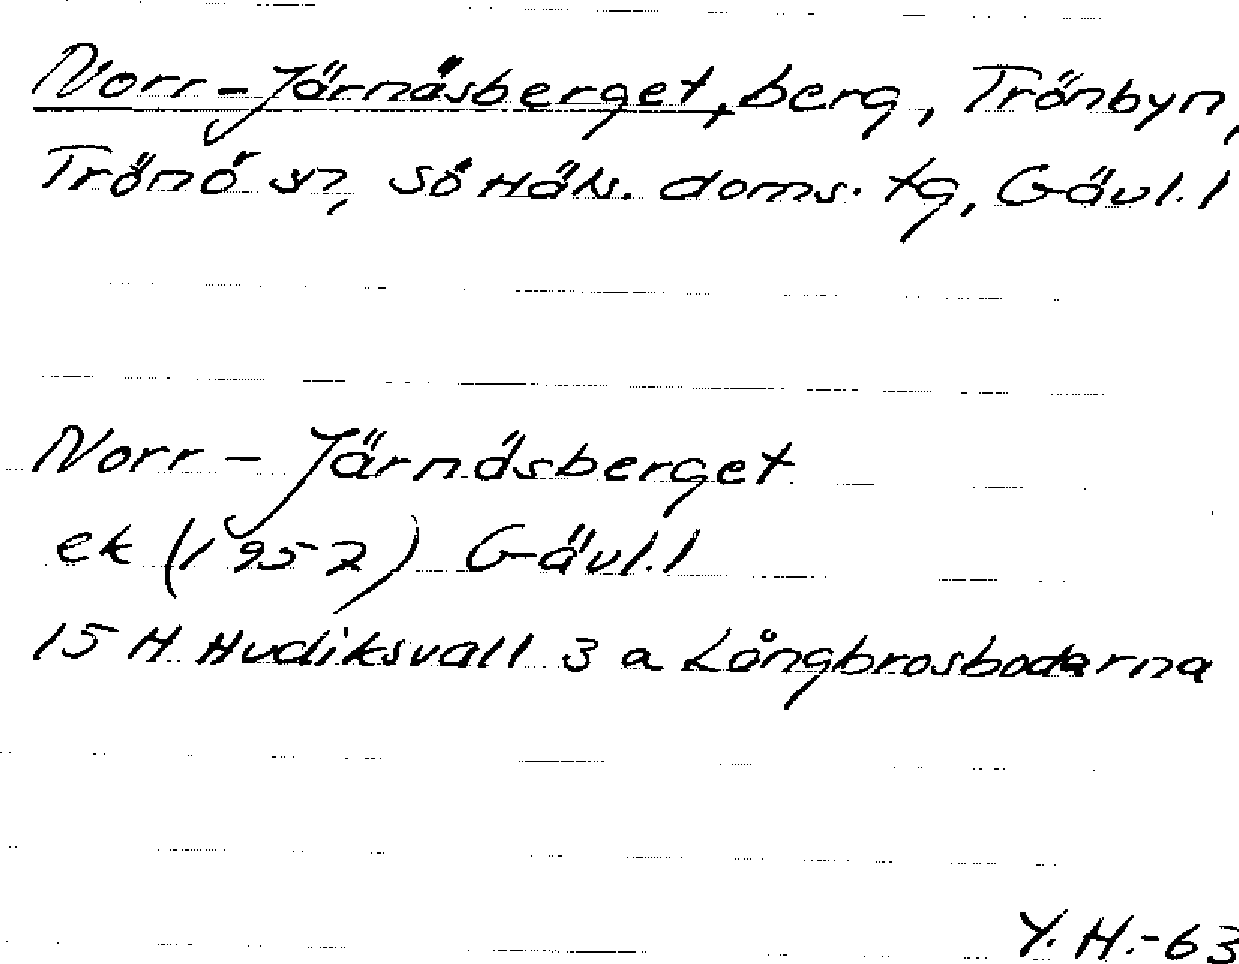 Norr-Järnäsberget, berg, Trönbyn,
Trönö sn, Sö Häls. doms. tg, Gävl. l
Norr-Järnäsberget
ek (1957) Gävl. l
15 H Hudiksvall 3 a Långbrosbodarna
Y. H.-63